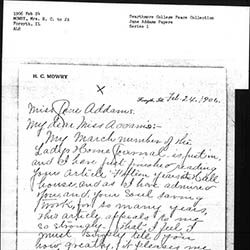 1906 Feb 24
MOWRY, Mrs. H. C. to JA
Forsyth, IL
ALS
Swarthmore College Peace Collection
Jane Addams Papers
Series 1
H. C. MOWRY
Forsyth, Ill. Feb. 24. 1906.
Miss Jane Addams.
My dear Miss Addams:-
My March number of the
Ladies Home Journal is just in,
and I have just finished reading
your article Fifteen years at Hull
house, and as I have admired
you, and your soul saving
work, for so many years,
this article appeals to me
so strongly. that I feel I
must simply tell you
how greatly it pleases me